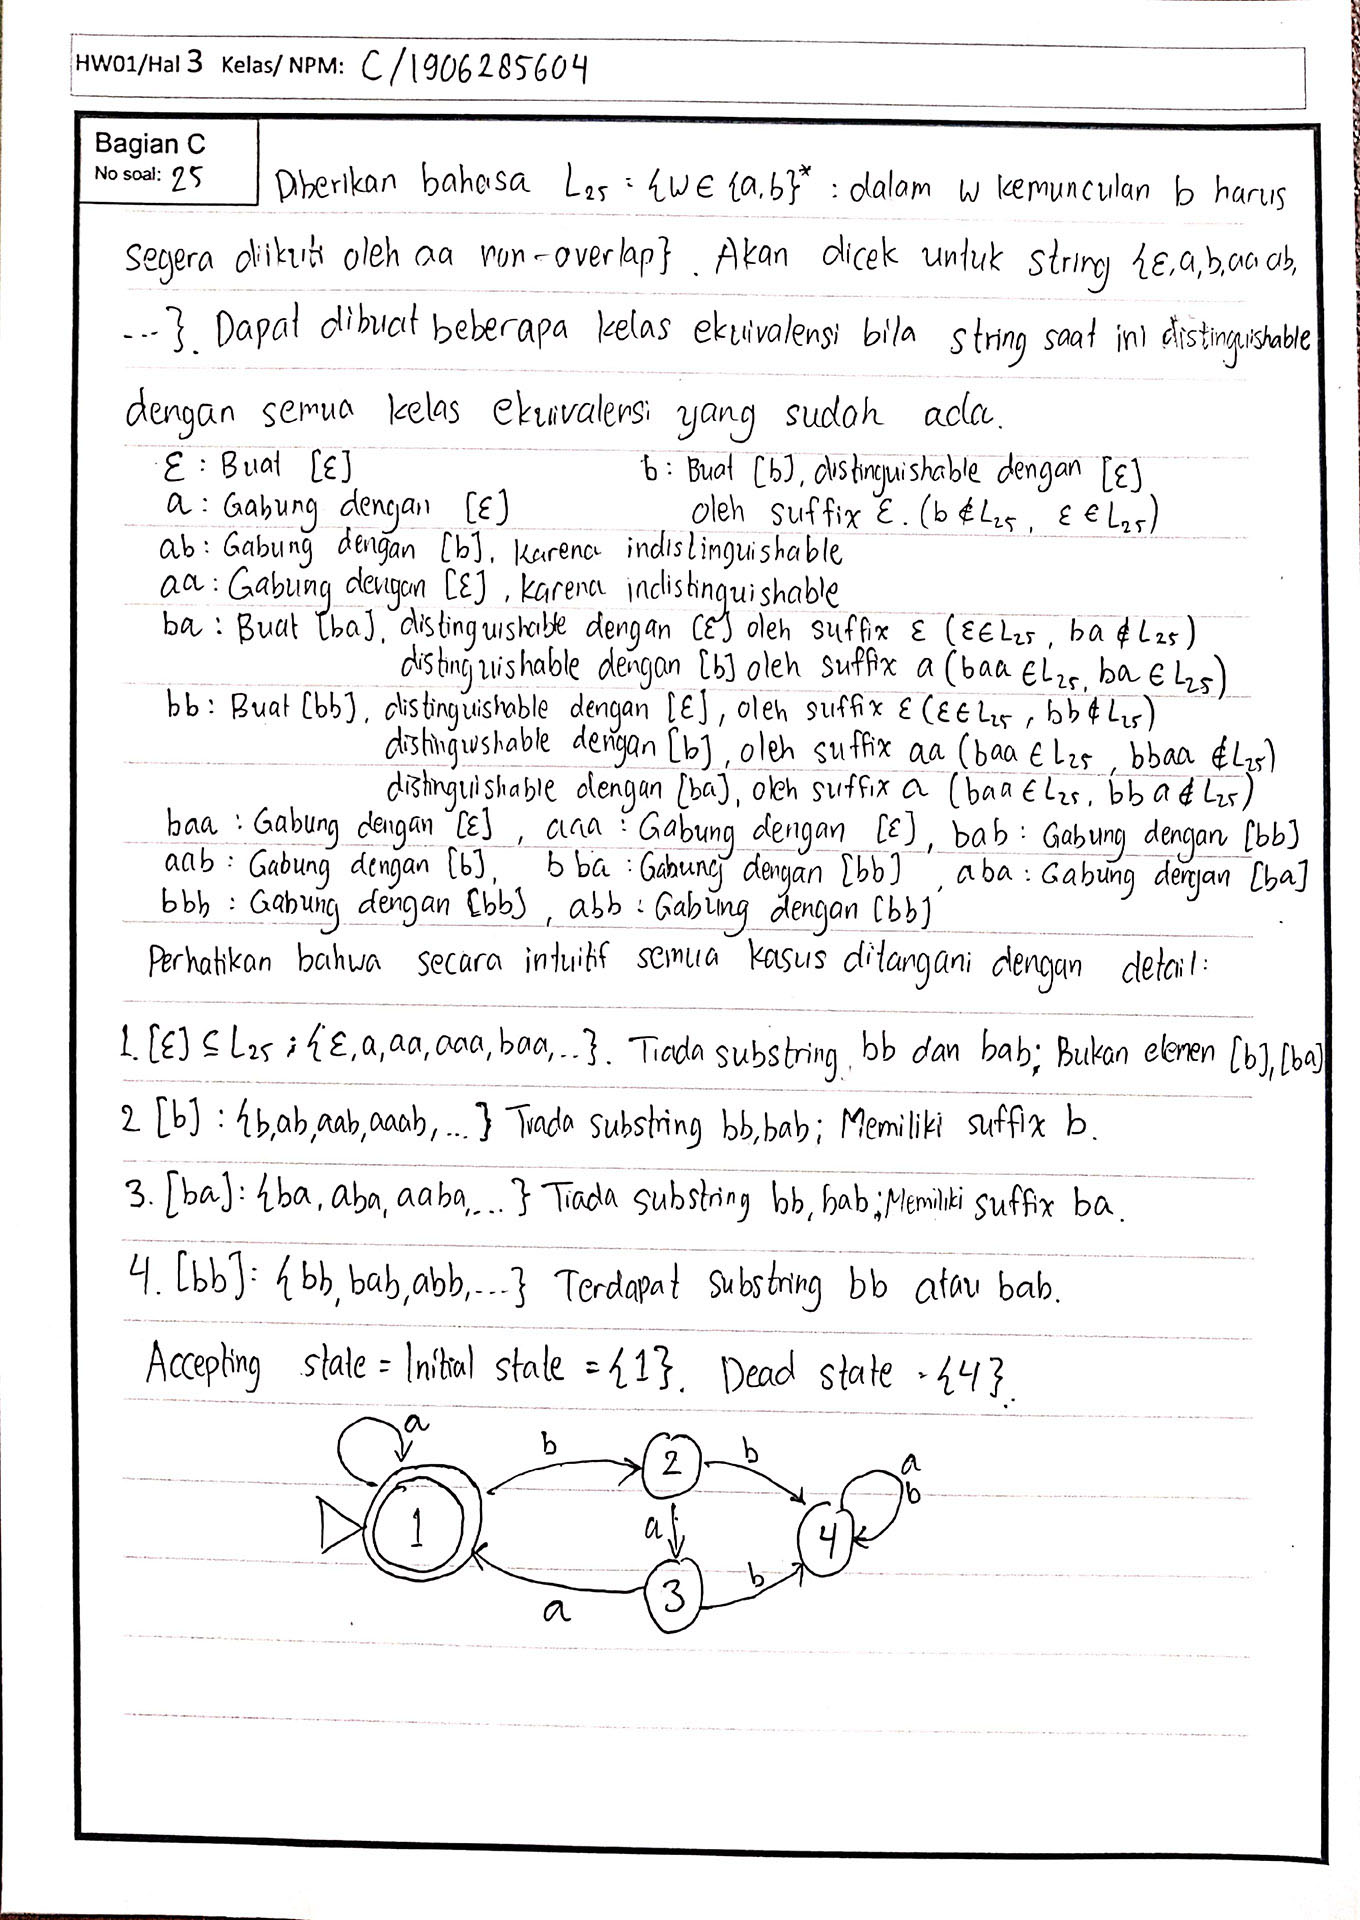 HW01/Hal 3 Kelas/ NPM: C/1906285604
Bagian C
No soal: 25
Diberikan bahasa L₂₅ = {w∈ {a,b}* : dalam w kemunculan b harus
segera diikuti oleh aa non-overlap}. Akan dicek untuk string {ε,a,b,aa ab,
...}. Dapat dibuat beberapa kelas ekuivalensi bila string saat ini distinguishable
dengan semua kelas ekuivalensi yang sudah ada.
ε : Buat [ε]
b : Buat [b], distinguishable dengan [ε]
a : Gabung dengan [ε]
oleh suffix ε. (b ∉ L₂₅, ε ∈ L₂₅)
ab : Gabung dengan [b], karena indistinguishable
aa : Gabung dengan [ε], karena indistinguishable
ba : Buat [ba], distinguishable dengan [ε] oleh suffix ε (ε∈L₂₅, ba ∉ L₂₅)
distinguishable dengan [b] oleh suffix a (baa ∈ L₂₅, ba ∈ L₂₅)
bb : Buat [bb], distinguishable dengan [ε], oleh suffix ε (ε∈L₂₅, bb ∉ L₂₅)
distinguishable dengan [b], oleh suffix aa (baa ∈ L₂₅, bbaa ∉ L₂₅)
distinguishable dengan [ba], oleh suffix a (baa ∈ L₂₅, bba ∉ L₂₅)
baa : Gabung dengan [ε], aaa : Gabung dengan [ε], bab : Gabung dengan [bb]
aab : Gabung dengan [b], bba : Gabung dengan [bb], aba : Gabung dengan [ba]
bbb : Gabung dengan [bb], abb : Gabung dengan [bb]
Perhatikan bahwa secara intuitif semua kasus ditangani dengan detail:
1. [ε] ⊆ L₂₅ ; {ε, a, aa, aaa, baa, ..}. Tiada substring bb dan bab; Bukan elemen [b], [ba]
2 [b] : {b, ab, aab, aaab, ...} Tiada substring bb, bab; Memiliki suffix b.
3. [ba]: {ba, aba, aaba, ...} Tiada substring bb, bab; Memiliki suffix ba.
4. [bb]: {bb, bab, abb, ...} Terdapat substring bb atau bab.
Accepting state = Initial state = {1}. Dead state = {4}.
a
b
2
b
a
b
1
a
4
3
b
a